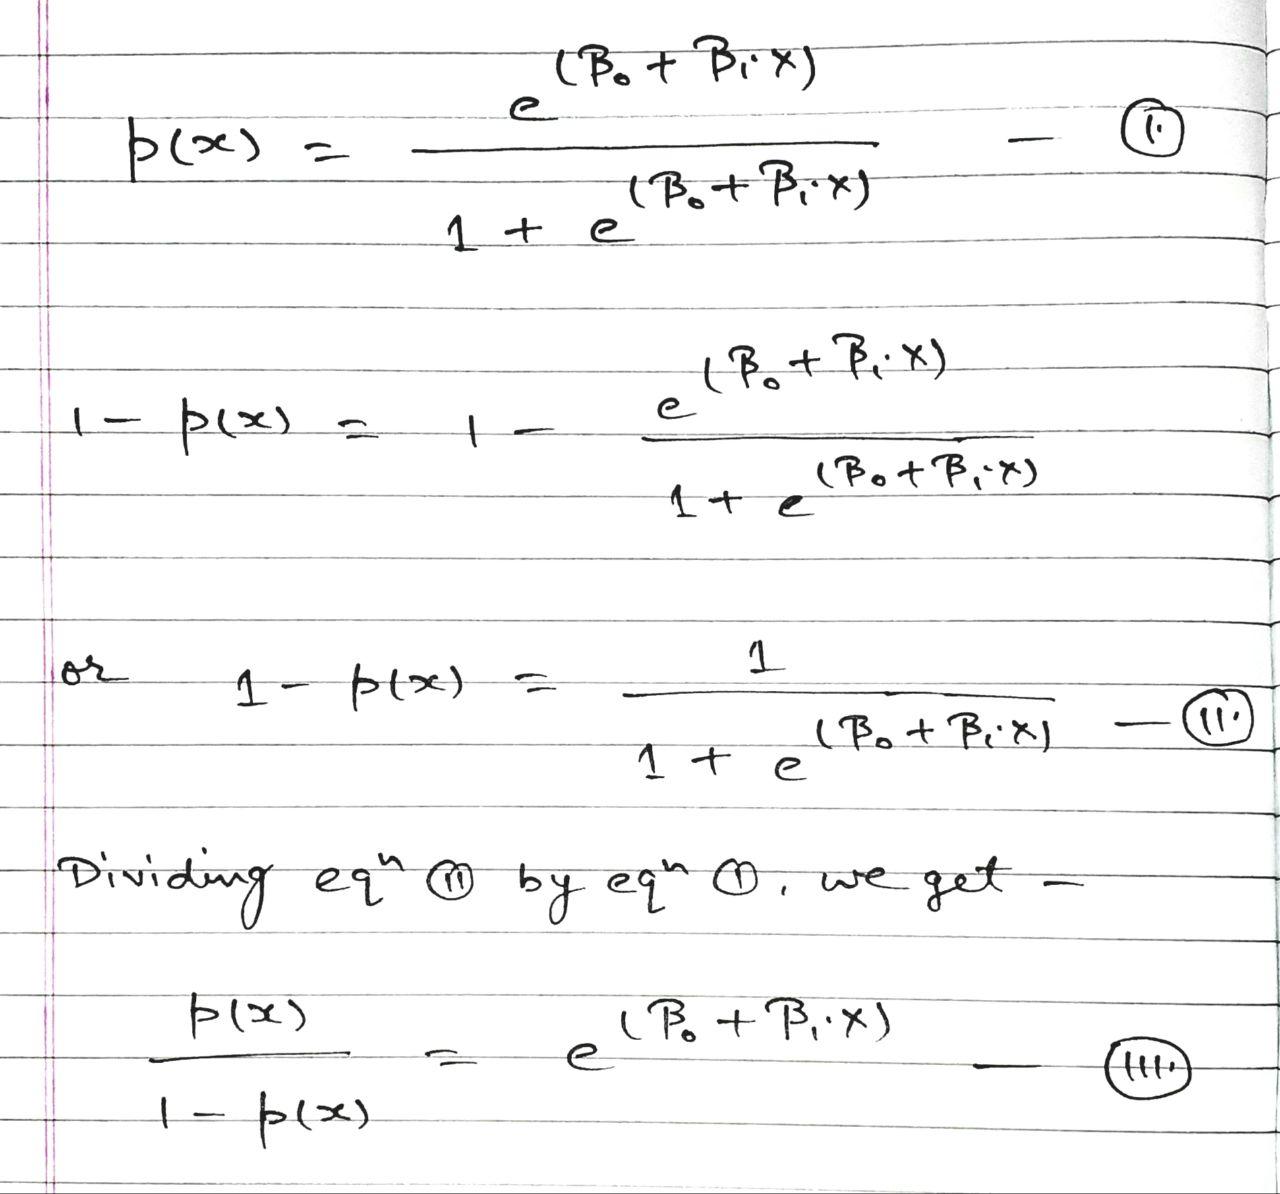 p(x) = e^(β₀ + β₁·x) / 1 + e^(β₀ + β₁·x) — (I.)
1 - p(x) = 1 - e^(β₀ + β₁·x) / 1 + e^(β₀ + β₁·x)
or 1 - p(x) = 1 / 1 + e^(β₀ + β₁·x) — (II.)
Dividing eqⁿ (II) by eqⁿ (I), we get -
p(x) / 1 - p(x) = e^(β₀ + β₁·x) — (III.)